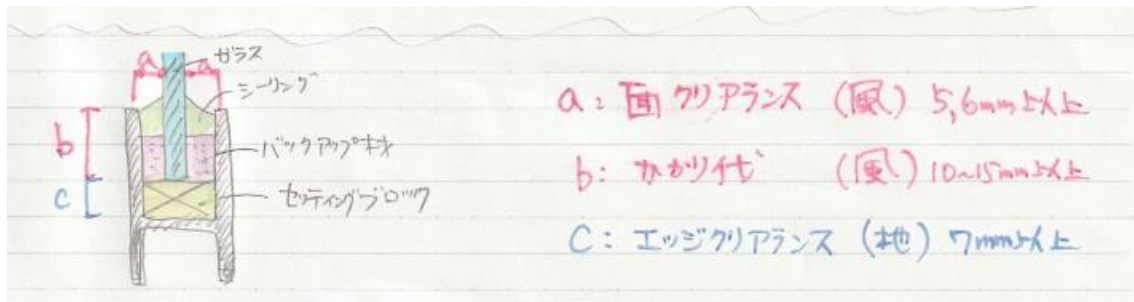 a
a
ガラス
シーリング
b
バックアップ材
c
セッティングブロック
a: 面クリアランス (風) 5,6mm以上
b: かかり代 (風) 10~15mm以上
C: エッジクリアランス (地) 7mm以上